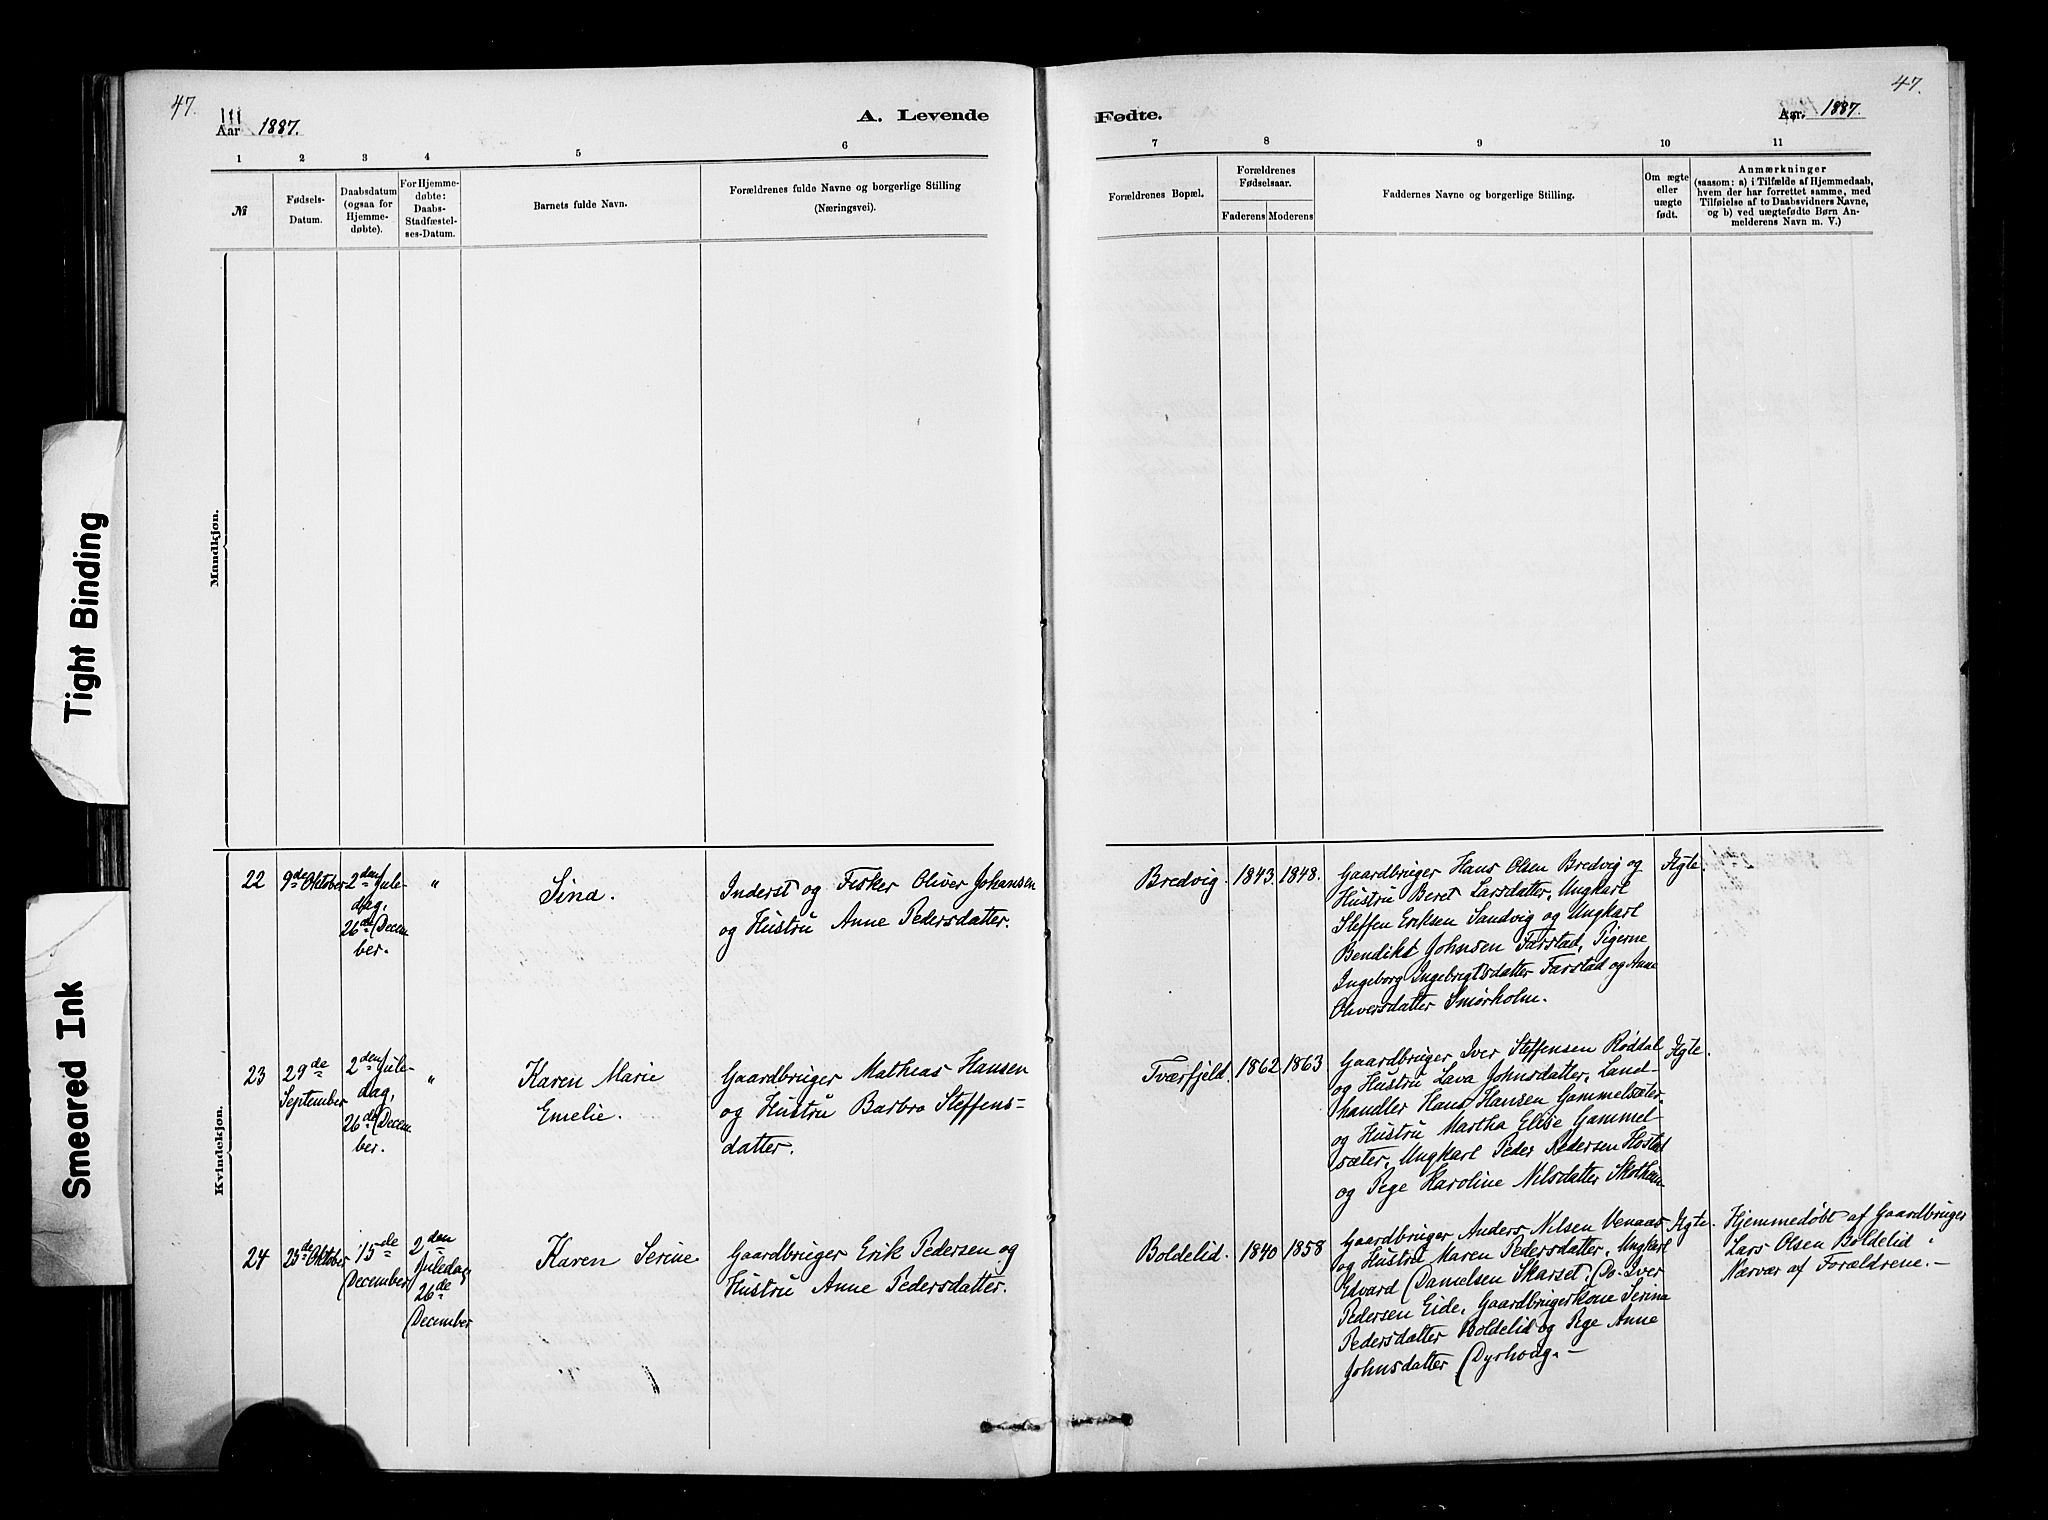 47.
Aar 1887.
A. Levende
Fødte.
Aar. 1887.
47.
1 2 3 4 5 6
7 8 9 10 11
№
Fødsels-
Datum.
Daabsdatum
(ogsaa for
Hjemme-
døbte).
For Hjemme-
døbte:
Daabs-
Stadfæstel-
ses-Datum.
Barnets fulde Navn.
Forældrenes fulde Navne og borgerlige Stilling
(Næringsvei).
Forældrenes Bopæl.
Forældrenes
Fødselsaar.
Faderens Moderens
Faddernes Navne og borgerlige Stilling.
Om ægte
eller
uægte
født.
Anmærkninger
(saasom: a) i Tilfælde af Hjemmedaab,
hvem der har forrettet samme, med
Tilføielse af to Daabsvidners Navne,
og b) ved uægtefødte Børn An-
melderens Navn m. V.)
Mandkjøn.
Kvindekjøn.
Tight Binding
Smeared Ink
22
9de Oktober
2den Jule-
dag,
26de Decem
ber.
"
Sina.
Inderst og Fisker Oliver Johansen
og Hustru Anne Pedersdatter.
Bredvig.
1843.
1848.
Gaardbruger Hans Olsen Bredvig og
Hustru Beret Larsdatter, Ungkarl
Steffen Eriksen Sandvig og Ungkarl
Bendikt Johnsen Farstad, Pigerne
Ingeborg Ingebrigtsdatter Farstad og Anne
Oliversdatter Smørholm.
Ægte.
23
29de
September
2den Jule-
dag,
26de Decem
ber.
"
Karen Marie
Emelie.
Gaardbruger Mathias Hansen
og Hustru Barbro Steffens-
datter.
Tværfjeld.
1862
1863
Gaardbruger Iver Steffensen Røddal
og Hustru Lava Johnsdatter, Land-
handler Hans Hansen Gammelsæter
og Hustru Martha Elise Gammel-
sæter, Ungkarl Peder Pedersen Hostad
og Pige Karoline Nilsdatter Skotheim
Ægte.
24
25de Oktober
15de
December
2den
Juledag
26de
December
Karen Serine
Gaardbruger Erik Pedersen og
Hustru Anne Pedersdatter.
Boldelid.
1840
1858
Gaardbruger Anders Nilsen Venaas
og Hustru Maren Pedersdatter, Ungkarl
Edvard Danielsen Skarset, Do. Iver
Pedersen Eide, Gaardbrugerkone Serina
Pedersdatter Boldelid og Pige Anne
Johnsdatter Dyrhoug.-
Ægte.
Hjemmedøbt af Gaardbruger
Lars Olsen Boldelid i
Nærvær af Forældrene.-